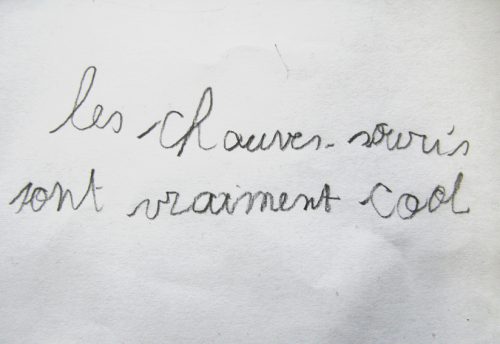 les chauves-souris
sont vraiment cool